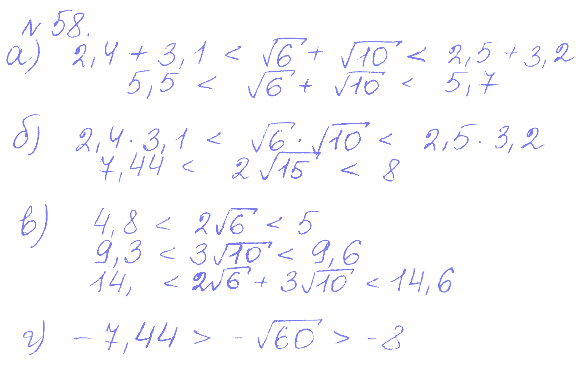 № 58.
а) 2,4 + 3,1 < √6 + √10 < 2,5 + 3,2
5,5 < √6 + √10 < 5,7
б) 2,4 · 3,1 < √6 · √10 < 2,5 · 3,2
7,44 < 2√15 < 8
в) 4,8 < 2√6 < 5
9,3 < 3√10 < 9,6
14, < 2√6 + 3√10 < 14,6
г) -7,44 > -√60 > -8